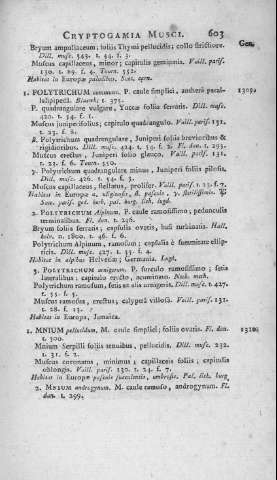 CRYPTOGAMIA MUSCI. 603
Bryum ampullaceum; foliis Thymi pellucidis; collo strictiore. Gen.
Dill. musc. 343. t. 44. f. 3.
Muscus capillaceus, minor; capitulis geminatis. Vaill. paris.
130. t. 29. f. 4. Tourn. 552.
Habitat in Europæ paludibus,
1. POLYTRICHUM commune. P. caule simplici, anthera parallelipipedi. 1309.
lulipipedi.
P. quadrangulare vulgare, Yuccæ foliis serratis. Dill. musc.
420. t. 54. f. 1.
Muscus juniperifolius; capitulo quadrangulo. Vaill. paris. 131.
t. 23. f. 8.
β. Polytrichum quadrangulare, Juniperi foliis brevioribus &
rigidioribus. Dill. musc. 424. t. 54. f. 2. Fl. dan. t. 295.
Muscus erectus, Juniperi folio glauco, Vaill. paris. 131.
t. 23. f. 6. Tourn. 550.
γ. Polytrichum quadrangulare minus, Juniperi foliis pilosis.
Dill. musc. 426. t. 54. f. 3.
Muscus capillaceus, stellatus, prolifer. Vaill. paris. t. 23. f. 7.
Habitat in Europæ α. uliginosis, β. pascuis, γ. sterilissimis.
2. POLYTRICHUM Alpinum. P. caule ramosissimo, pedunculis
terminalibus. Fl. dan. t. 296.
Bryum foliis serratis; capsulis ovatis, basi turbinata. Hall.
helv. n. 1800. t. 46. f. 6.
Polytrichum Alpinum, ramosum; capsulis è summitate ellipticis.
Dill. musc. 427. t. 55. f. 4.
Habitat in alpibus Helvetiæ; Germania.
3. POLYTRICHUM urnigerum. P. surculo ramosissimo; setis
lateralibus; capitulo erecto, acuminato.
Polytrichum ramosum, setis ex alis urnigeris. Dill. musc. t. 427.
t. 55. f. 5.
Muscus ramosus, erectus, calyptrâ villosâ. Vaill. paris. 131.
t. 28. f. 13.
Habitat in Europa, Jamaica.
1. MNIUM pellucidum. M. caule simplici; foliis ovatis. Fl. dan. 1310.
t. 300.
Mnium Serpilli foliis tenuibus, pellucidis. Dill. musc. 232.
t. 31. f. 2.
Muscus coronatus, minimus; capillaceis foliis; capitulis
oblongis. Vaill. paris. 130. t. 24. f. 7.
Habitat in Europæ pascuis
2. MNIUM androgynum. M. caule ramoso, androgynum. Fl.
dan. t. 299.